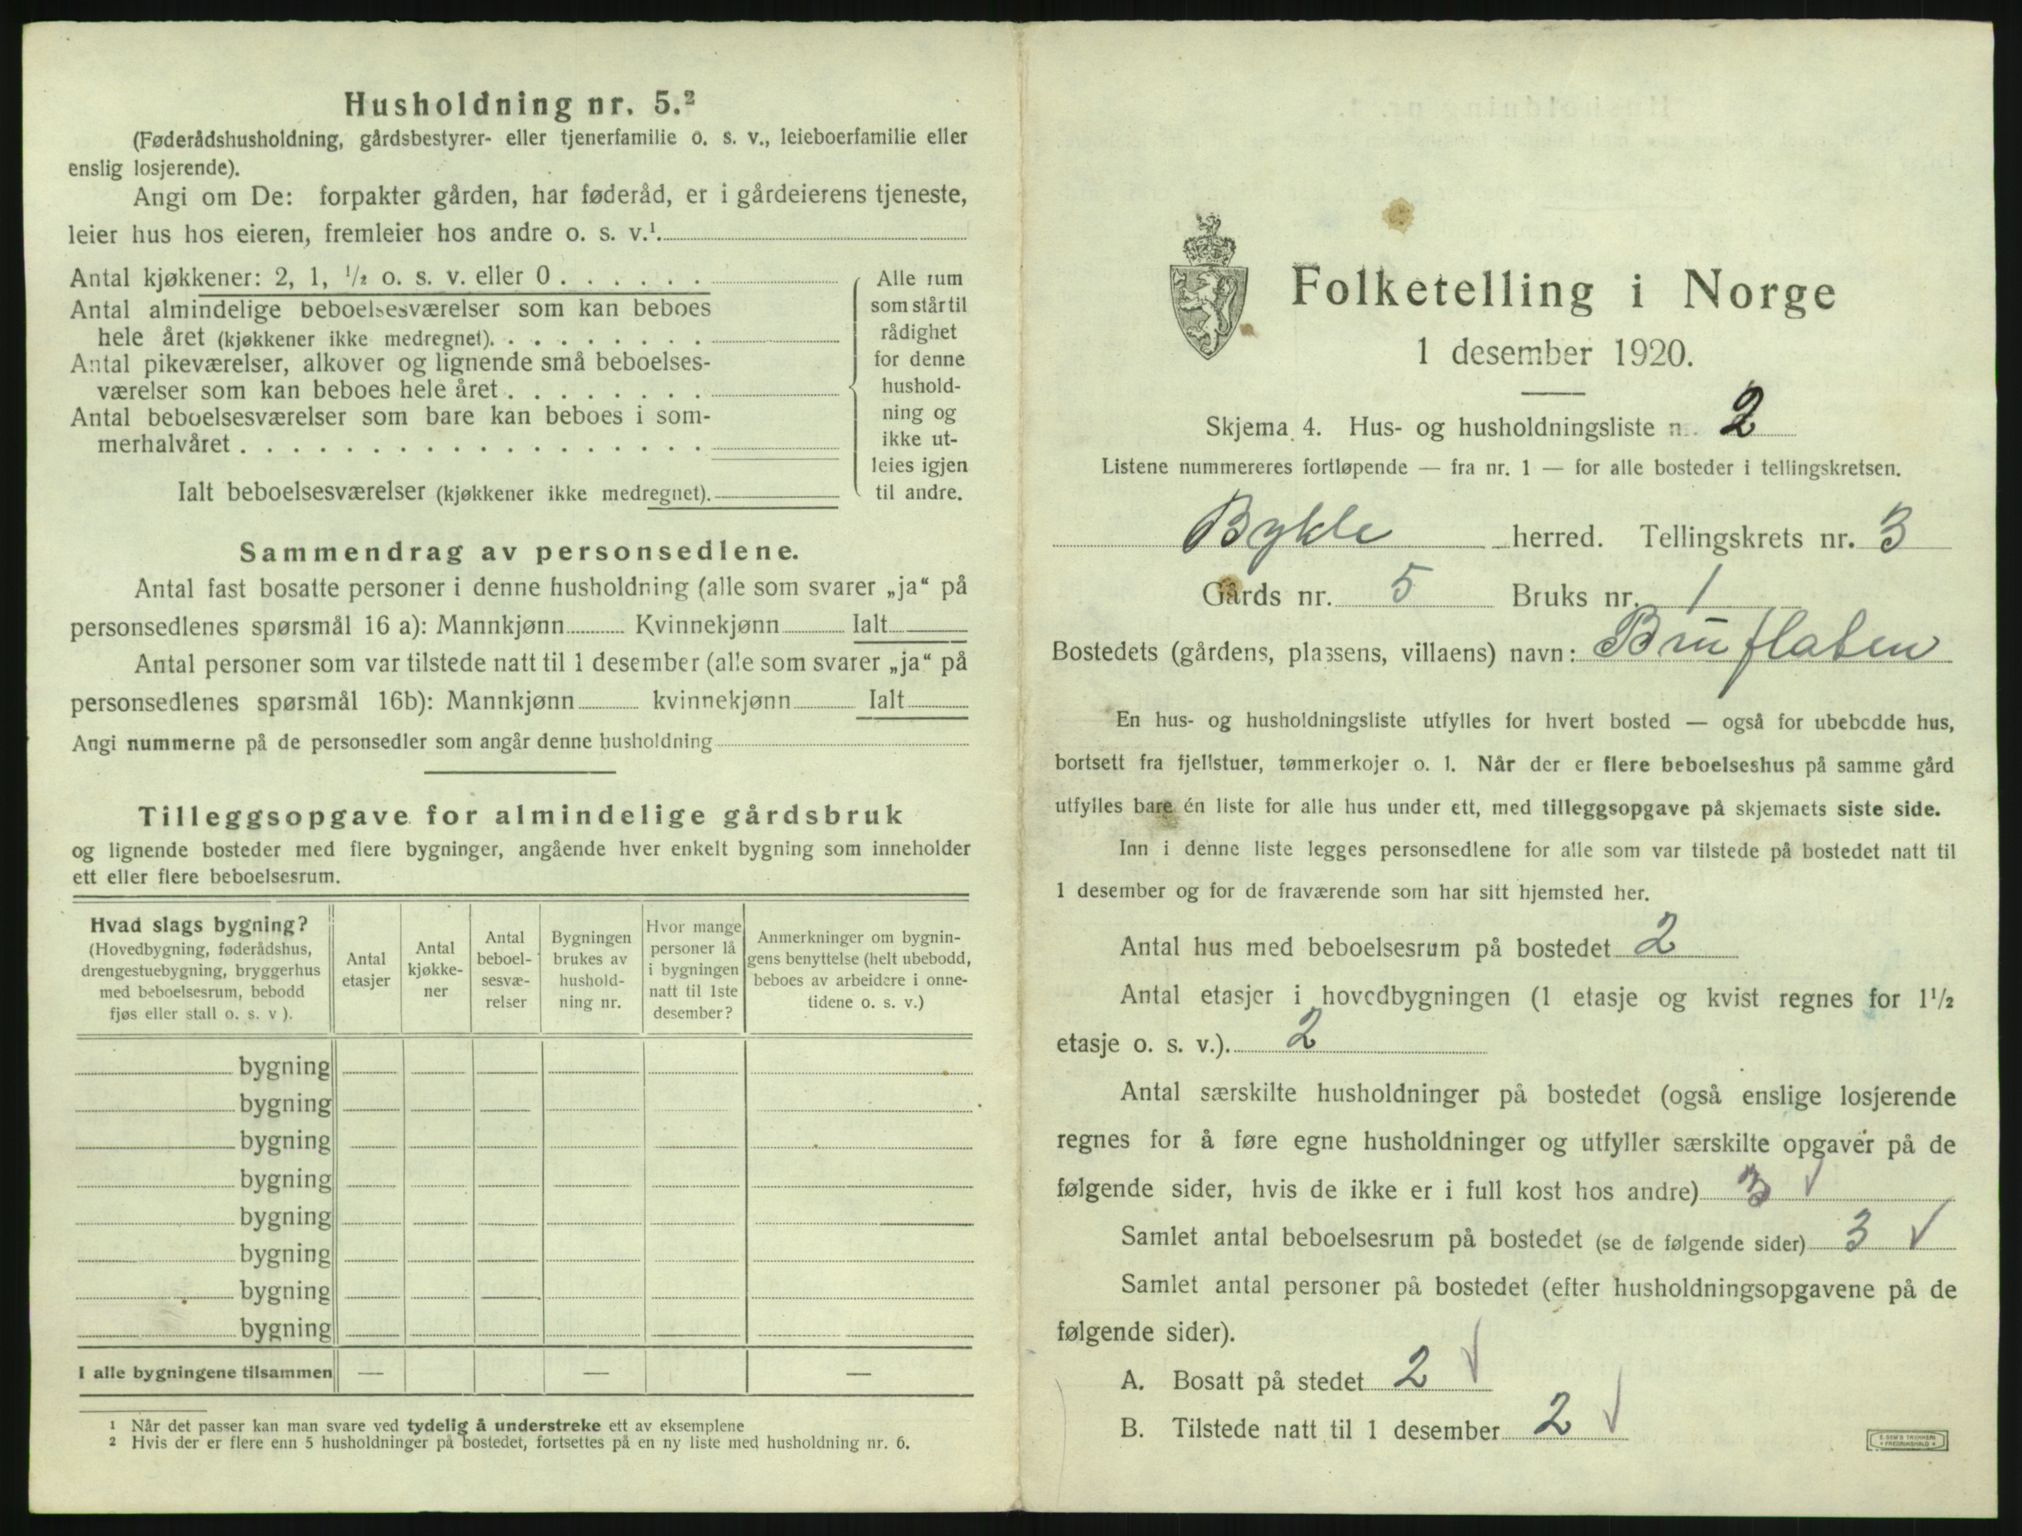 Husholdning nr. 5.²
(Føderådshusholdning, gårdsbestyrer- eller tjenerfamilie o. s. v., leieboerfamilie eller
enslig losjerende).
Angi om De: forpakter gården, har føderåd, er i gårdeierens tjeneste,
leier hus hos eieren, fremleier hos andre o. s. v.¹
Antal kjøkkener: 2, 1, ½ o. s. v. eller 0 . . . . . .
Antal almindelige beboelsesværelser som kan beboes
hele året (kjøkkener ikke medregnet). . . . . . . . .
Antal pikeværelser, alkover og lignende små beboelses-
værelser som kan beboes hele året . . . . . . . .
Antal beboelsesværelser som bare kan beboes i som-
merhalvåret . . . . . . . . . . . . . . . . . .
Ialt beboelsesværelser (kjøkkener ikke medregnet).
Alle rum
som står til
rådighet
for denne
hushold-
ning og
ikke ut-
leies igjen
til andre.
Sammendrag av personsedlene.
Antal fast bosatte personer i denne husholdning (alle som svarer „ja“ på
personsedlenes spørsmål 16 a): Mannkjønn Kvinnekjønn Ialt
Antal personer som var tilstede natt til 1 desember (alle som svarer „ja“ på
personsedlenes spørsmål 16b): Mannkjønn kvinnekjønn Ialt
Angi nummerne på de personsedler som angår denne husholdning
Tilleggsopgave for almindelige gårdsbruk
og lignende bosteder med flere bygninger, angående hver enkelt bygning som inneholder
ett eller flere beboelsesrum.
Hvad slags bygning?
(Hovedbygning, føderådshus,
drengestuebygning, bryggerhus
med beboelsesrum, bebodd
fjøs eller stall o. s. v ).
Antal
etasjer
Antal
kjøkke-
ner
Antal
beboel-
sesvæ-
relser
Bygningen
brukes av
hushold-
ning nr.
Hvor mange
personer lå
i bygningen
natt til 1ste
desember?
Anmerkninger om bygnin-
gens benyttelse (helt ubebodd,
beboes av arbeidere i onne-
tidene o. s. v.)
bygning
bygning
bygning
bygning
bygning
bygning
bygning
bygning
I alle bygningene tilsammen — — —
¹ Når det passer kan man svare ved tydelig å understreke ett av eksemplene
² Hvis der er flere enn 5 husholdninger på bostedet, fortsettes på en ny liste med husholdning nr. 6.
Folketelling i Norge
1 desember 1920.
Skjema 4. Hus- og husholdningsliste n. 2
Listene nummereres fortløpende — fra nr. 1 — for alle bosteder i tellingskretsen.
Bykle herred. Tellingskrets nr. 3
Gårds nr. 5 Bruks nr. 1
Bostedets (gårdens, plassens, villaens) navn: Bruflaten
En hus- og husholdningsliste utfylles for hvert bosted — også for ubebodde hus,
bortsett fra fjellstuer, tømmerkojer o. l. Når der er flere beboelseshus på samme gård
utfylles bare én liste for alle hus under ett, med tilleggsopgave på skjemaets siste side.
Inn i denne liste legges personsedlene for alle som var tilstede på bostedet natt til
1 desember og for de fraværende som har sitt hjemsted her.
Antal hus med beboelsesrum på bostedet 2
Antal etasjer i hovedbygningen (1 etasje og kvist regnes for 1½
etasje o. s. v.). 2
Antal særskilte husholdninger på bostedet (også enslige losjerende
regnes for å føre egne husholdninger og utfyller særskilte opgaver på de
følgende sider, hvis de ikke er i full kost hos andre) 3 ✓
Samlet antal beboelsesrum på bostedet (se de følgende sider) 3 ✓
Samlet antal personer på bostedet (efter husholdningsopgavene på de
følgende sider).
A. Bosatt på stedet 2 ✓
B. Tilstede natt til 1 desember 2 ✓